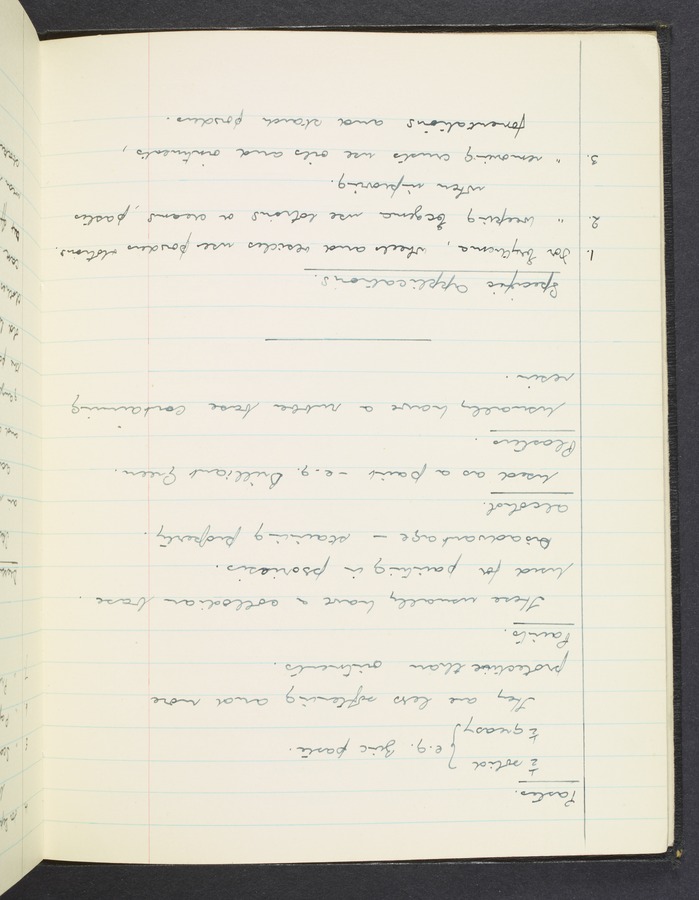 Pastes.
½ solid } e.g. Zinc paste.
½ greasy
They are less softening and more
protective than ointments.
Paints.
These usually have a collodian base.
Used for painting in psoriasis.
Disadvantage – staining property.
alcohol.
Used as a paint – e.g. Brilliant Green.
Plasters.
Usually have a rubber base containing
resin.
Specific Applications.
1. For Erythema, wheals and vesicles use powders lotions.
2. " weeping Eczema use lotions or creams, pastes
when improving.
3. " removing crusts use oils and ointments,
fomentations and starch powders.